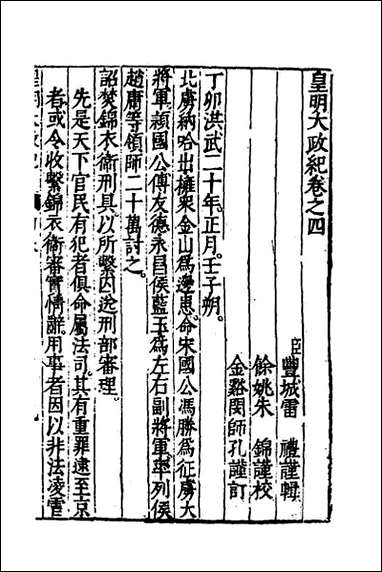 皇明大政紀卷之四
臣豐城雷 禮謹輯
餘姚朱 錦謹校
金谿閔師孔謹訂
丁卯洪武二十年。正月。壬子朔。
北虜納哈出擁衆金山爲邊患。命宋國公馮勝爲征虜大
將軍。潁國公傅友德永昌侯藍玉爲左右副將軍。率列侯
趙庸等領師二十萬討之。
詔焚錦衣衛刑具。以所繫囚送刑部審理。
先是天下官民有犯者。俱命屬法司。其有重罪逮至京
者。或令收繫錦衣衛。審實情辭。用事者因以非法凌虐